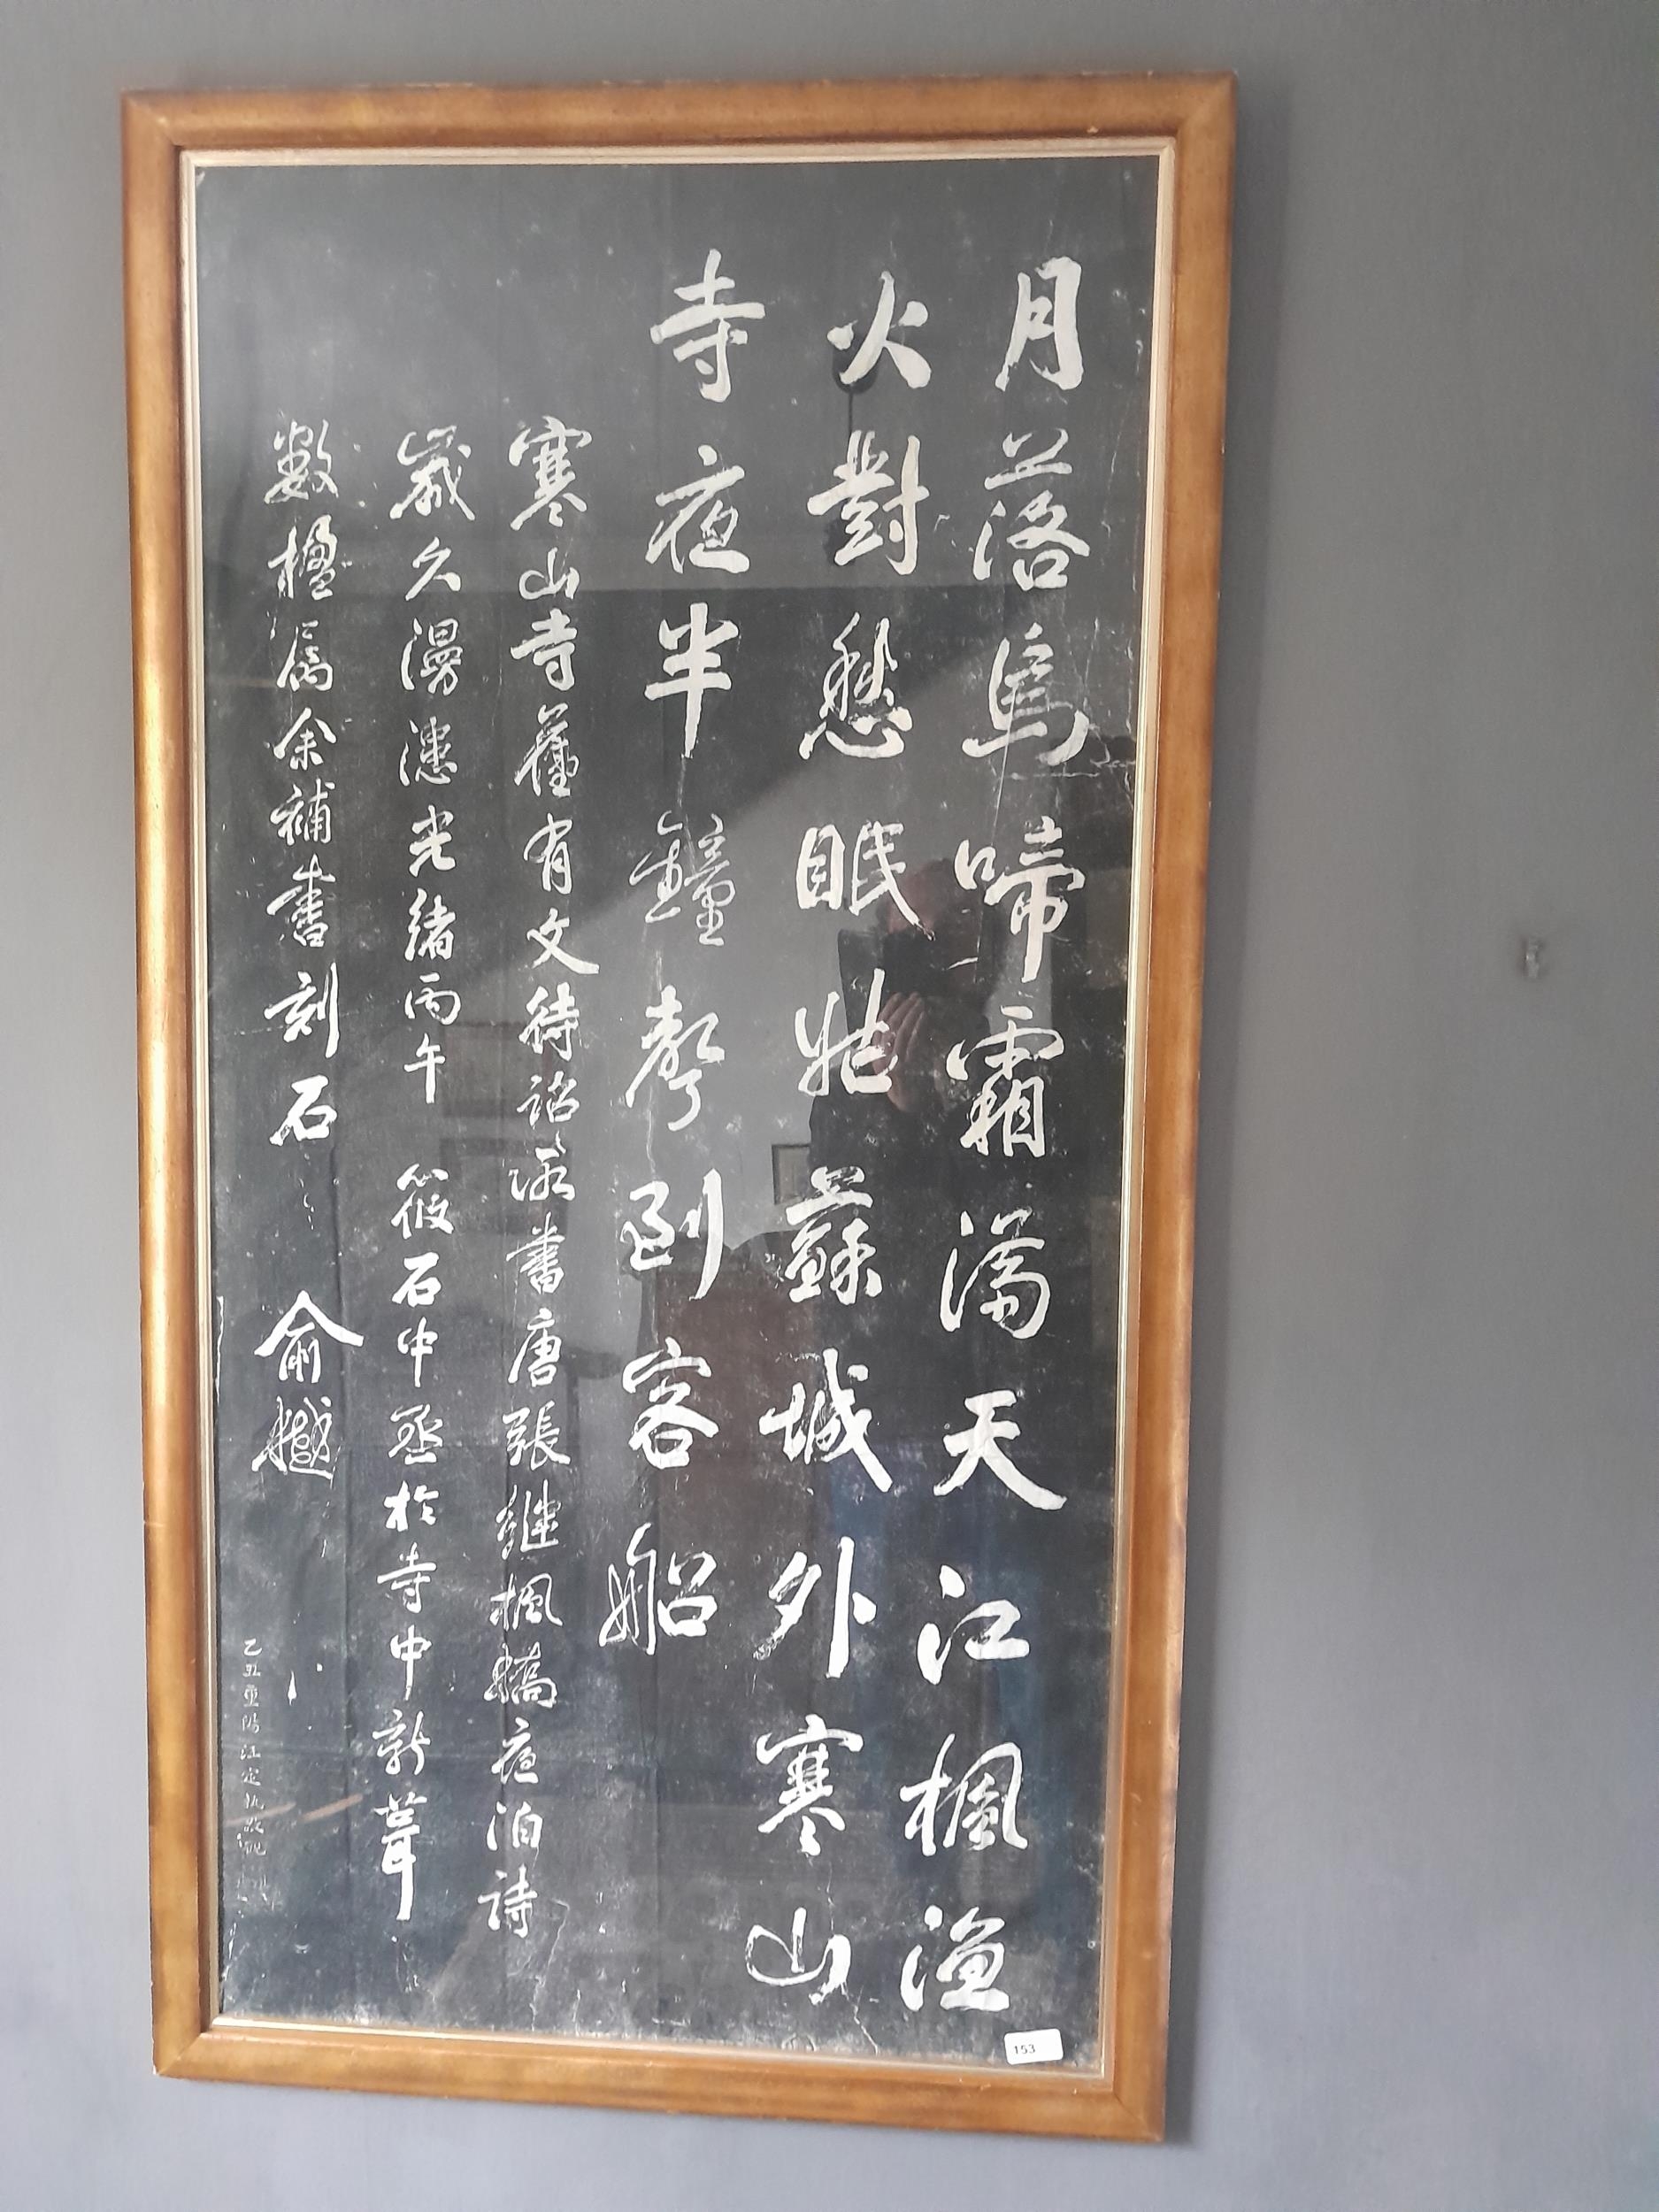 月落烏啼霜滿天江楓漁
火對愁眠姑蘇城外寒山
寺夜半鐘聲到客船
寒山寺舊有文待詔所書唐張繼楓橋夜泊詩
歲久漫漶光緒丙午 筱石中丞於寺中新葺
數楹屬余補書刻石 俞樾
乙丑重陽江定
153